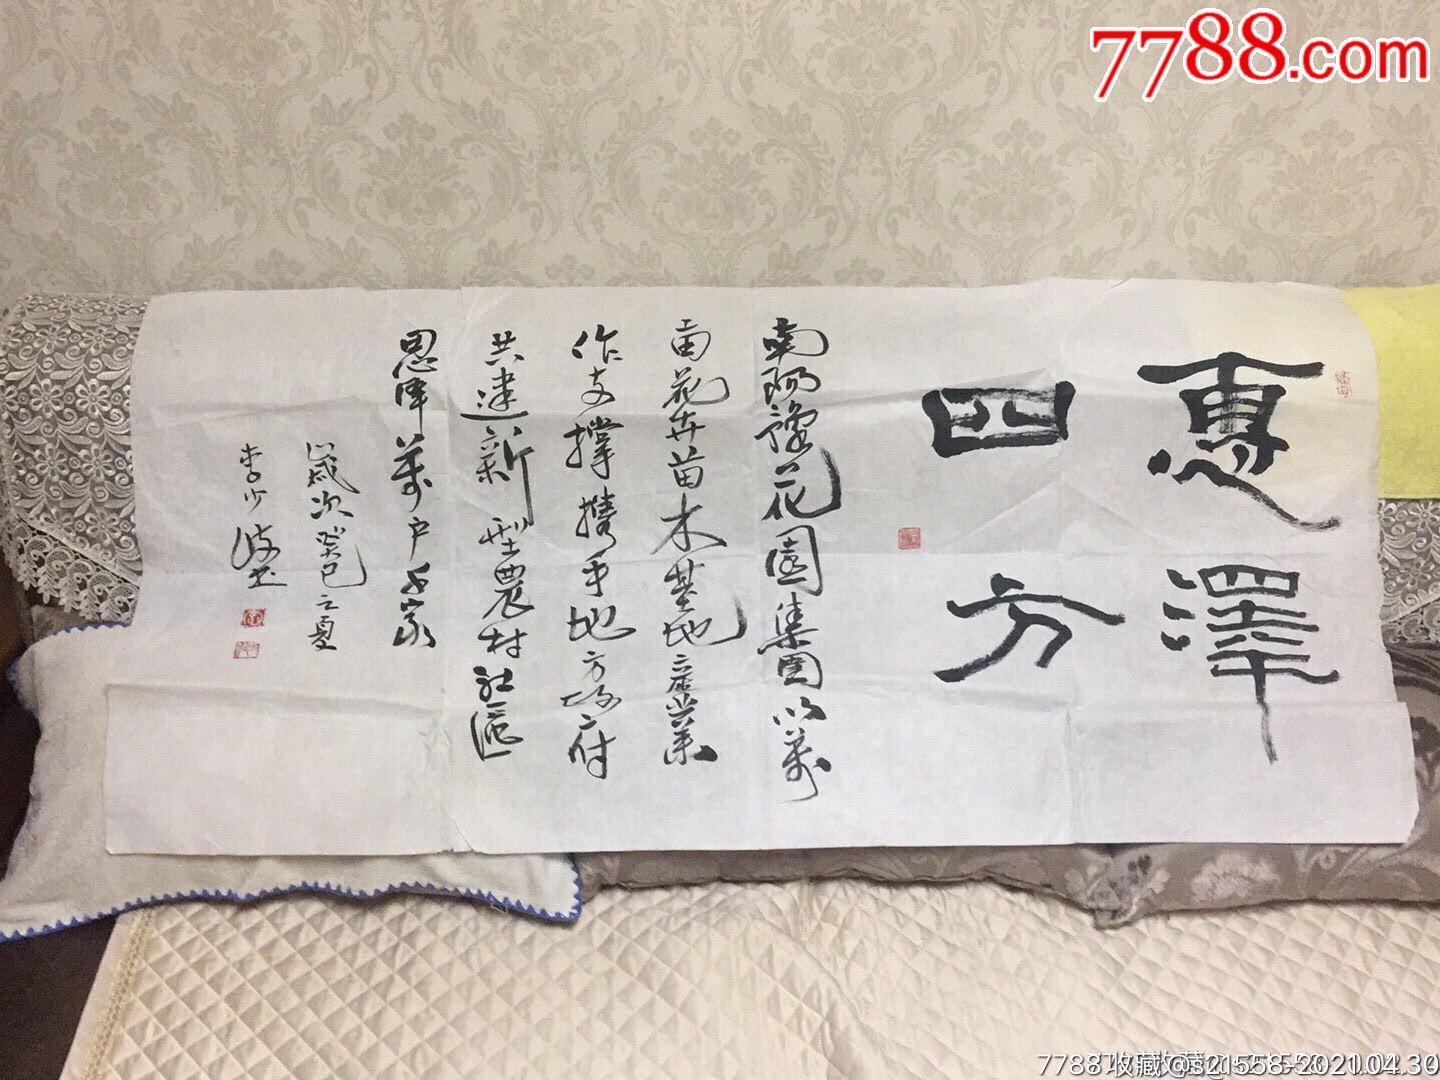 7788.com
惠澤
四方
南陽豫花園集團以萬
亩花卉苗木基地產業
作支撑攜手地方政府
共建新型農村社區
恩澤萬户千家
歲次癸巳之夏
李少波书
7788收藏@s21558-2021.04.30